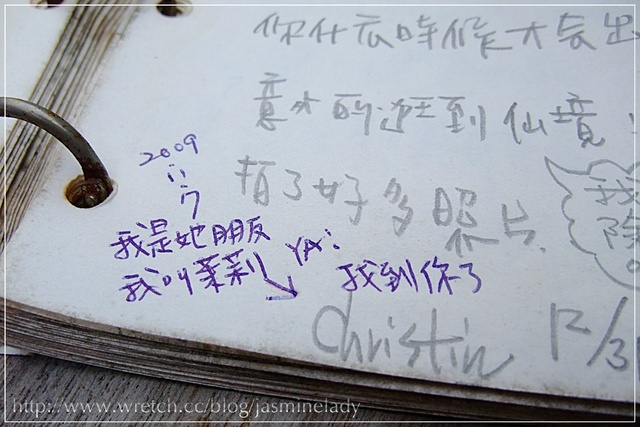 你什厷時候才會出
意外的逛到仙境
拍了好多照片
我
除
2009
11
7
我是她朋友 YA!
我叫茉莉↘ 找到你了
Christin 12/31
http://www.wretch.cc/blog/jasminelady